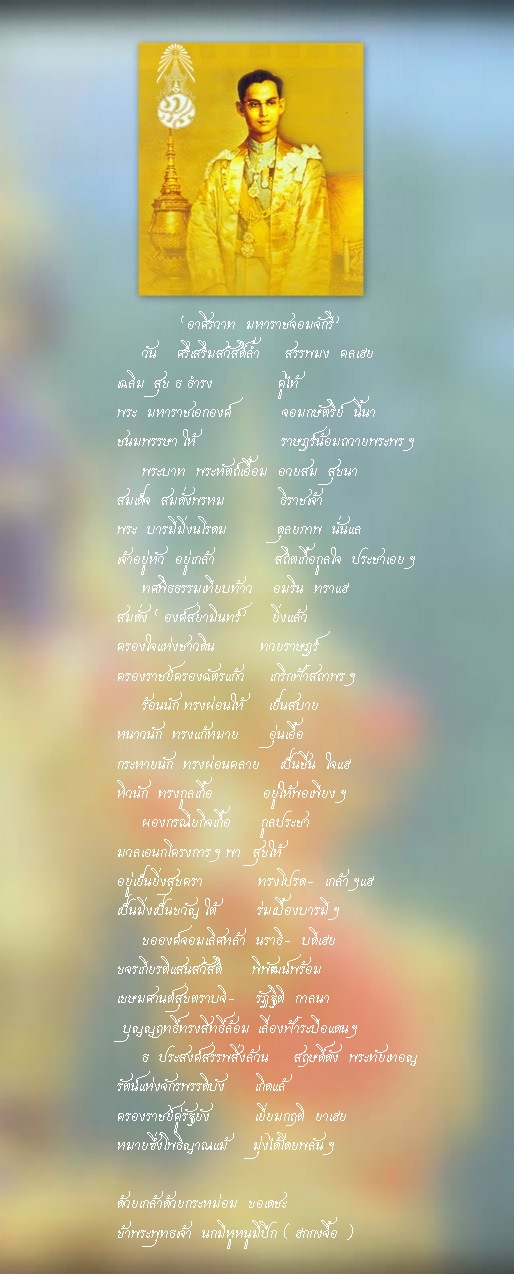 'อาศิรวาท มหาราชจอมจักรี'
วัน ศรีเสริมสวัสดิ์ล้ำ สรรพมง คลเฮย
เฉลิม สุข ธ ธำรง คู่ไท้
พระ มหาราชเอกองค์ จอมกษัตริย์ นี้นา
ชนมพรรษา ให้ ราษฎร์น้อมถวายพระพร ฯ
พระบาท พระหัตถ์เอื้อม อวยสม สุขนา
สมเด็จ สมดั่งพรหม ธิราชเจ้า
พระ บารมีมิ่งนโรดม ดุลยภาพ นั่นแล
เจ้าอยู่หัว อยู่เกล้า สถิตเกื้อกูลใจ ประชาเอย ฯ
ทศพิธธรรมเทียบท้าว อมริน ทราแฮ
สมดั่ง 'องค์สยามินทร์' ยิ่งแล้ว
ครองใจแห่งชาวดิน ทวยราษฎร์
ครองราชย์ครองฉัตรแก้ว เกริกฟ้าสถาพร ฯ
ร้อนนัก ทรงผ่อนให้ เย็นสบาย
หนาวนัก ทรงแก้หมาย อุ่นเอื้อ
กระหายนัก ทรงผ่อนคลาย เป็นชื่น ใจแฮ
หิวนัก ทรงกูลเกื้อ อยู่ให้พอเพียง ฯ
ผองกรณียกิจเกื้อ กูลประชา
มวลเอนกโครงการฯ พา สุขให้
อยู่เย็นยิ่งสุขครา ทรงโปรด- เกล้า ฯแฮ
เป็นมิ่งเป็นขวัญ ใต้ ร่มเบื้องบารมี ฯ
ขอองค์จอมเลิศหล้า นราธิ- บดีเฮย
ขจรเกียรติแสนสวัสดิ์ พิพัฒน์พร้อม
เขษมศานต์สุขตราบจิ- รัฏฐิติ กาลนา
บุญญฤทธิ์ทรงสิทธิ์ล้อม เลื่องฟ้าระบือแดน ฯ
ธ ประสงค์สรรพสิ่งล้วน สฤษดิ์ดั่ง พระทัยเทอญ
รัตน์แห่งจักรพรรดิบัง เกิดแล้
ครองราชย์คู่รัฐยัง เยี่ยมกฤติ ยาเฮย
หมายซึ่งโพธิญาณแม้ มุ่งได้โดยพลัน ฯ
ด้วยเกล้าด้วยกระหม่อม ขอเดชะ
ข้าพระพุทธเจ้า